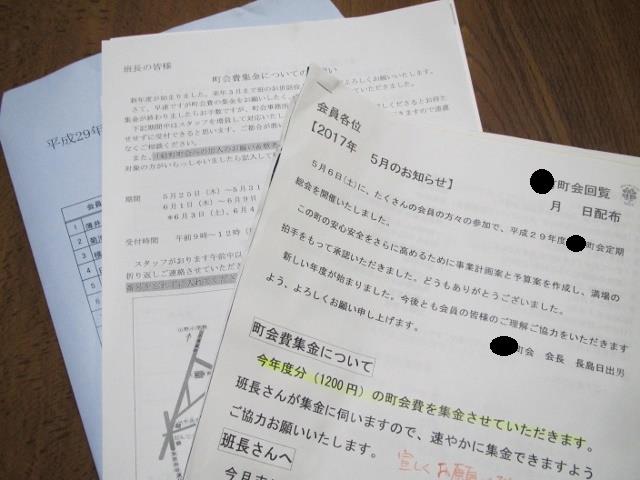 平成29年
会員
1 薄井
2 菊池
3
4
5
6
班長の皆様
町会費集金について
新年度が始まりました。
さて、早速ですが町会費の集金をお願いしたく、
集金が終わりましたらお手数ですが、町会事務所
下記期間中はスタッフを増員して対応いたし
せずに受付できると思います。ご都合が悪い
なくご相談ください。
対象の方がいらっしゃいましたら記入して
期間 5月25日(木)~5月31
6月1日(木)~6月9日
*6月3日(土)、6月4
受付時間 午前9時~12時(
スタッフがおります午前中以
折り返しご連絡させていただき
会員各位
【2017年 5月のお知らせ】
町会回覧
月 日配布
5月6日(土)に、たくさんの会員の方々の参加で、平成29年度 町会定期
総会を開催いたしました。
この町の安心安全をさらに高めるために事業計画案と予算案を作成し、満場の
拍手をもって承認いただきました。どうもありがとうございました。
新しい年度が始まりました。今後とも会員の皆様のご理解ご協力をいただきます
よう、よろしくお願い申し上げます。
町会 会長 長島日出男
町会費集金について
今年度分(1200円)の町会費を集金させていただきます。
班長さんが集金に伺いますので、速やかに集金できますよう
ご協力お願いいたします。
宜しくお願い
班長さんへ